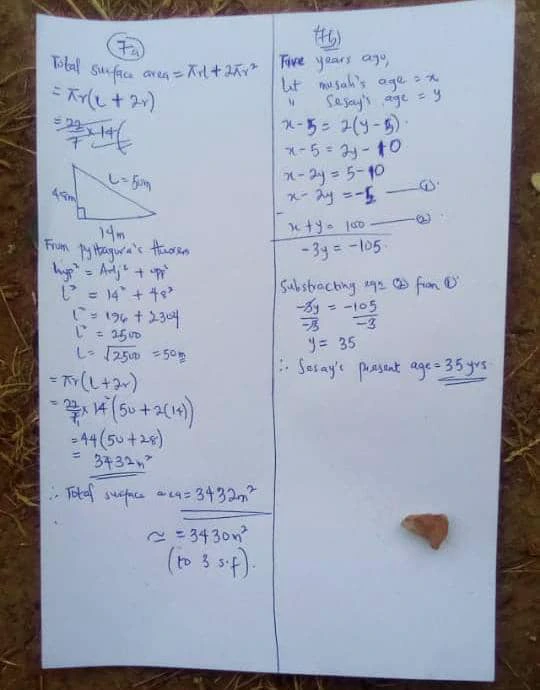 7a
Total surface area = πrl + 2πr²
= πr(l + 2r)
= 22/7 × 14(
48m
L = 50m
14m
From pythagora's theorem
hyp² = Adj² + opp²
L² = 14² + 48²
L² = 196 + 2304
L² = 2500
L = √2500 = 50m
= πr(l + 2r)
= 22/7 × 14 (50 + 2(14))
= 44(50 + 28)
= 3432m²
∴ Total surface area = 3432m²
≃ = 3430m²
(to 3 s.f).
7b
Five years ago,
Let musah's age = x
" Sesay's age = y
x - 5 = 2(y - 5)
x - 5 = 2y - 10
x - 2y = 5 - 10
x - 2y = -5 — ①
x + y = 100 — ②
-3y = -105
Substracting eqn ② from ①
-3y/-3 = -105/-3
y = 35
∴ Sesay's present age = 35 yrs